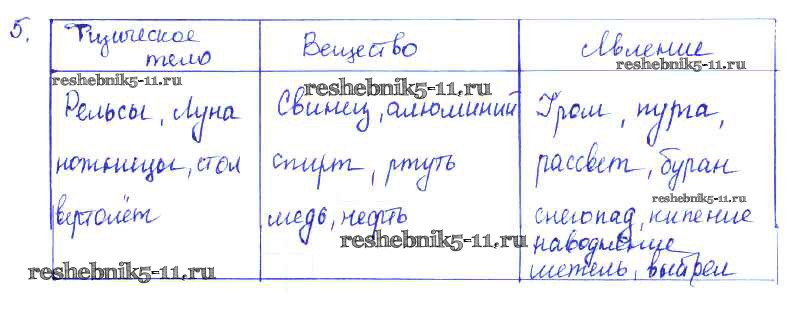 5.
Физическое тело
Вещество
Явление
reshebnik5-11.ru
reshebnik5-11.ru
reshebnik5-11.ru
Рельсы, Луна
ножницы, стол
вертолёт
Свинец, алюминий
спирт, ртуть
медь, нефть
Гром, пурга,
рассвет, буран
reshebnik5-11.ru
снегопад, кипение
наводнение
метель, выстрел
reshebnik5-11.ru
reshebnik5-11.ru